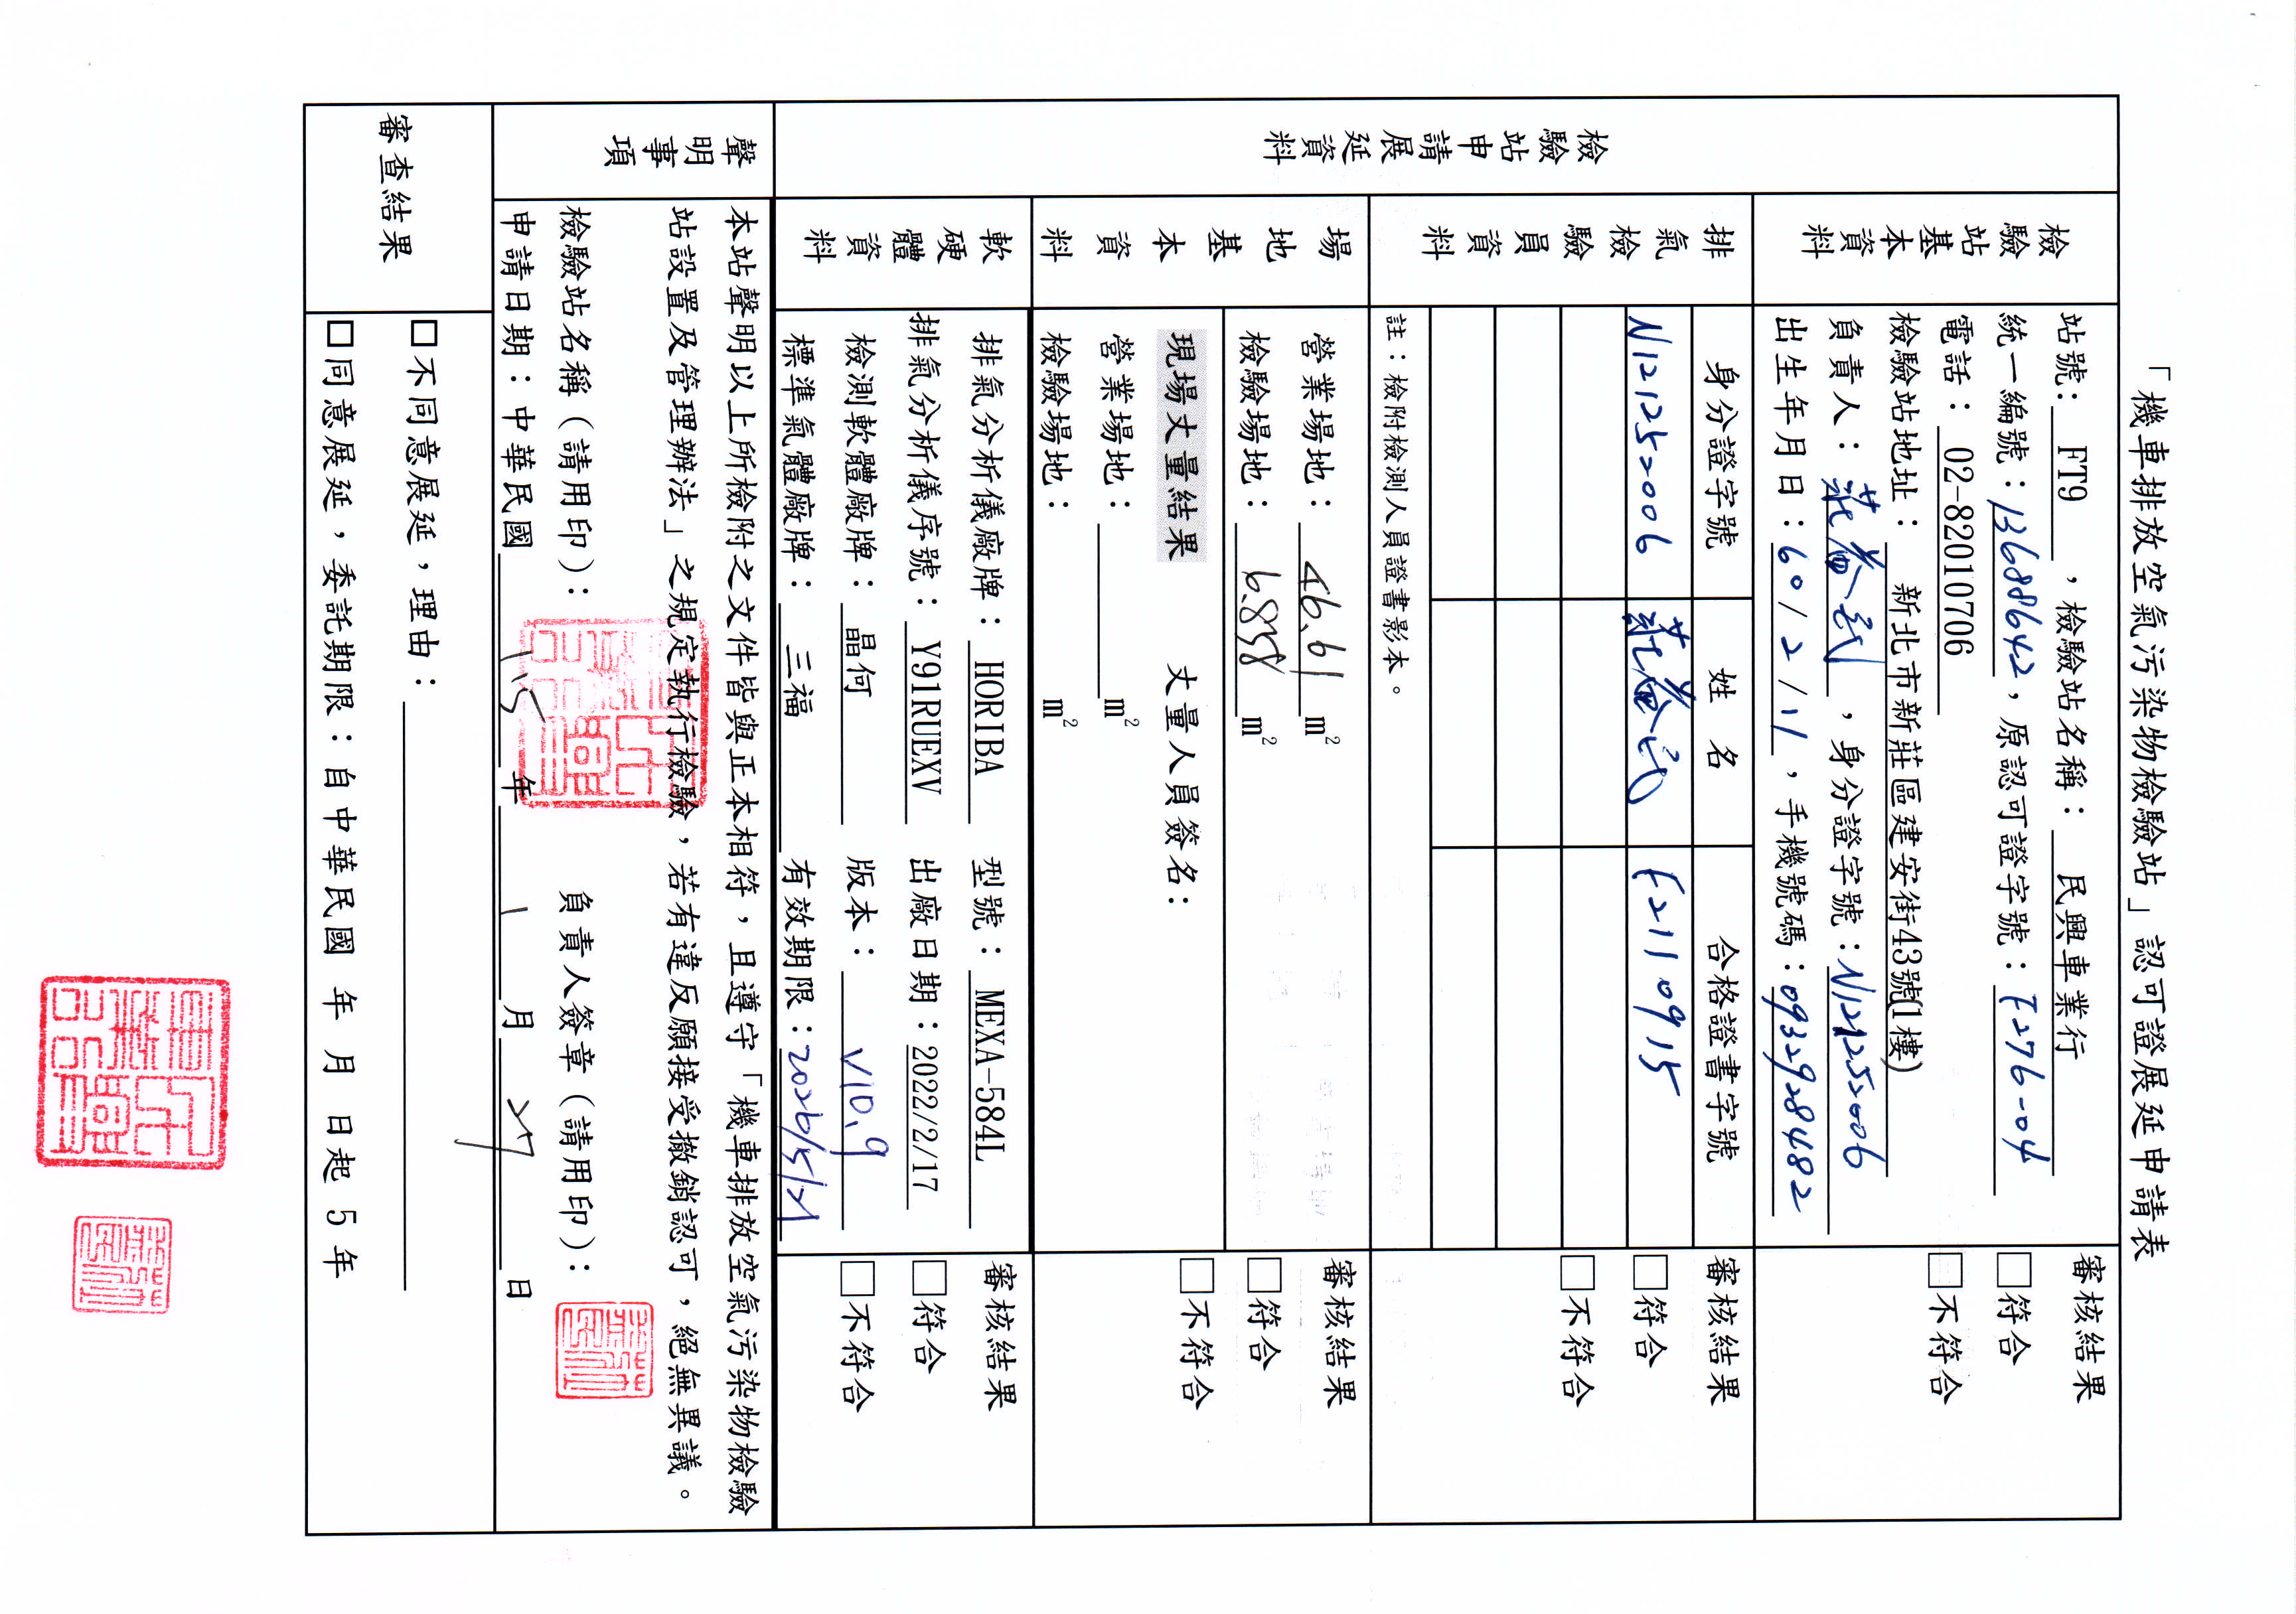 「機車排放空氣污染物檢驗站」認可證展延申請表
檢驗站申請展延資料
檢驗站基本資料
站號: FT9 ,檢驗站名稱: 民興車業行
統一編號:13688642,原認可證字號:F276-04
電話: 02-82010706
檢驗站地址: 新北市新莊區建安街43號(1樓)
負責人: ,身分證字號:N121252006
出生年月日:60/2/11,手機號碼:0932928482
審核結果
□符合
□不符合
排氣檢驗員資料
身分證字號 姓名 合格證書字號
N121252006 F2110915
註:檢附檢測人員證書影本。
審核結果
□符合
□不符合
場地基本資料
營業場地: 46.61 m²
檢驗場地: 6.858 m²
現場丈量結果 丈量人員簽名:
營業場地: m²
檢驗場地: m²
審核結果
□符合
□不符合
軟硬體資料
排氣分析儀廠牌: HORIBA 型號: MEXA-584L
排氣分析儀序號: Y91RUEXV 出廠日期:2022/2/17
檢測軟體廠牌: 晶何 版本: V10.9
標準氣體廠牌: 三福 有效期限:2026/5/21
審核結果
□符合
□不符合
聲明事項
本站聲明以上所檢附之文件皆與正本相符,且遵守「機車排放空氣污染物檢驗
站設置及管理辦法」之規定執行檢驗,若有違反願接受撤銷認可,絕無異議。
檢驗站名稱(請用印): 負責人簽章(請用印):
申請日期:中華民國 115 年 1 月 27 日
審查結果
□不同意展延,理由:
□同意展延,委託期限:自中華民國 年 月 日起 5 年